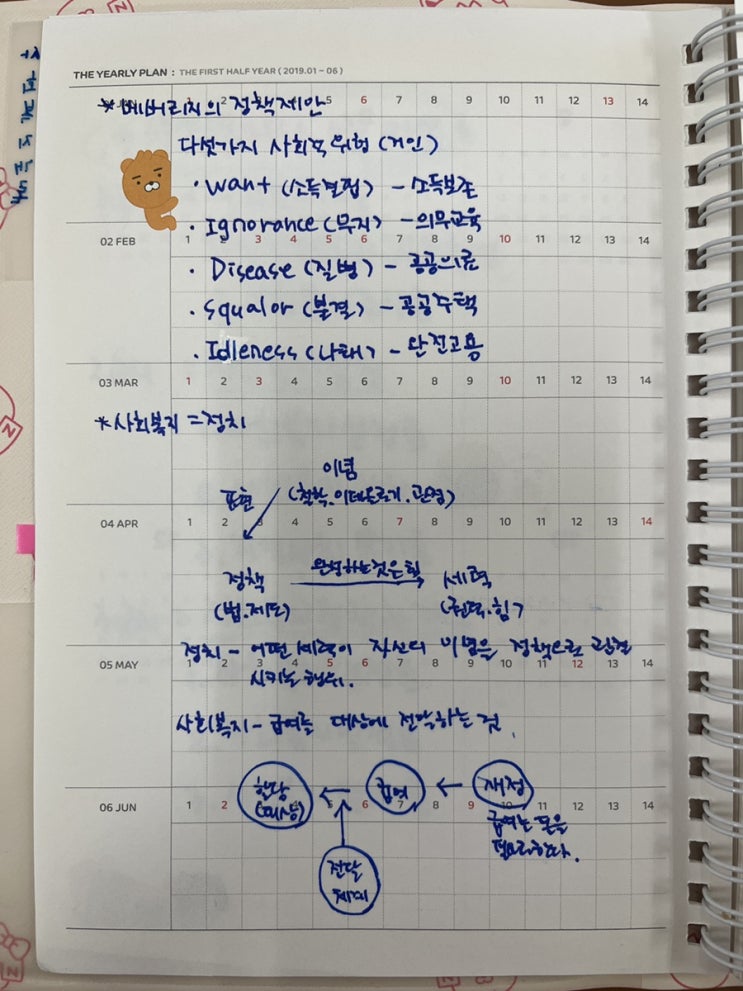 THE YEARLY PLAN : THE FIRST HALF YEAR ( 2019.01 – 06 )
2 5 6 7 8 9 10 11 12 13 14
*베버리지의 정책제안
다섯가지 사회적 위험 (거인)
· Want (소득결핍) - 소득보존
· Ignorance (무지) - 의무교육
02 FEB 1 2 3 4 5 6 7 8 9 10 11 12 13 14
· Disease (질병) - 공공의료
· Squalor (불결) - 공공주택
· Idleness (나태) - 완전고용
03 MAR 1 2 3 4 5 6 7 8 9 10 11 12 13 14
*사회복지 = 정치
이념
표현 (철학.이데올로기.관점)
04 APR 1 2 3 4 5 6 7 8 9 10 11 12 13 14
정책 세력
(법.제도) (권력.힘)
정치 - 어떤 세력이 자신의 이념을 정책으로 관철
05 MAY 1 2 3 4 5 6 7 8 9 10 11 12 13 14
시키는 행위.
사회복지 - 급여를 대상에 전달하는 것.
할당 급여 재정
(대상)
06 JUN 1 2 5 6 7 8 9 10 11 12 13 14
급여는 돈을
필요로한다.
전달
체계